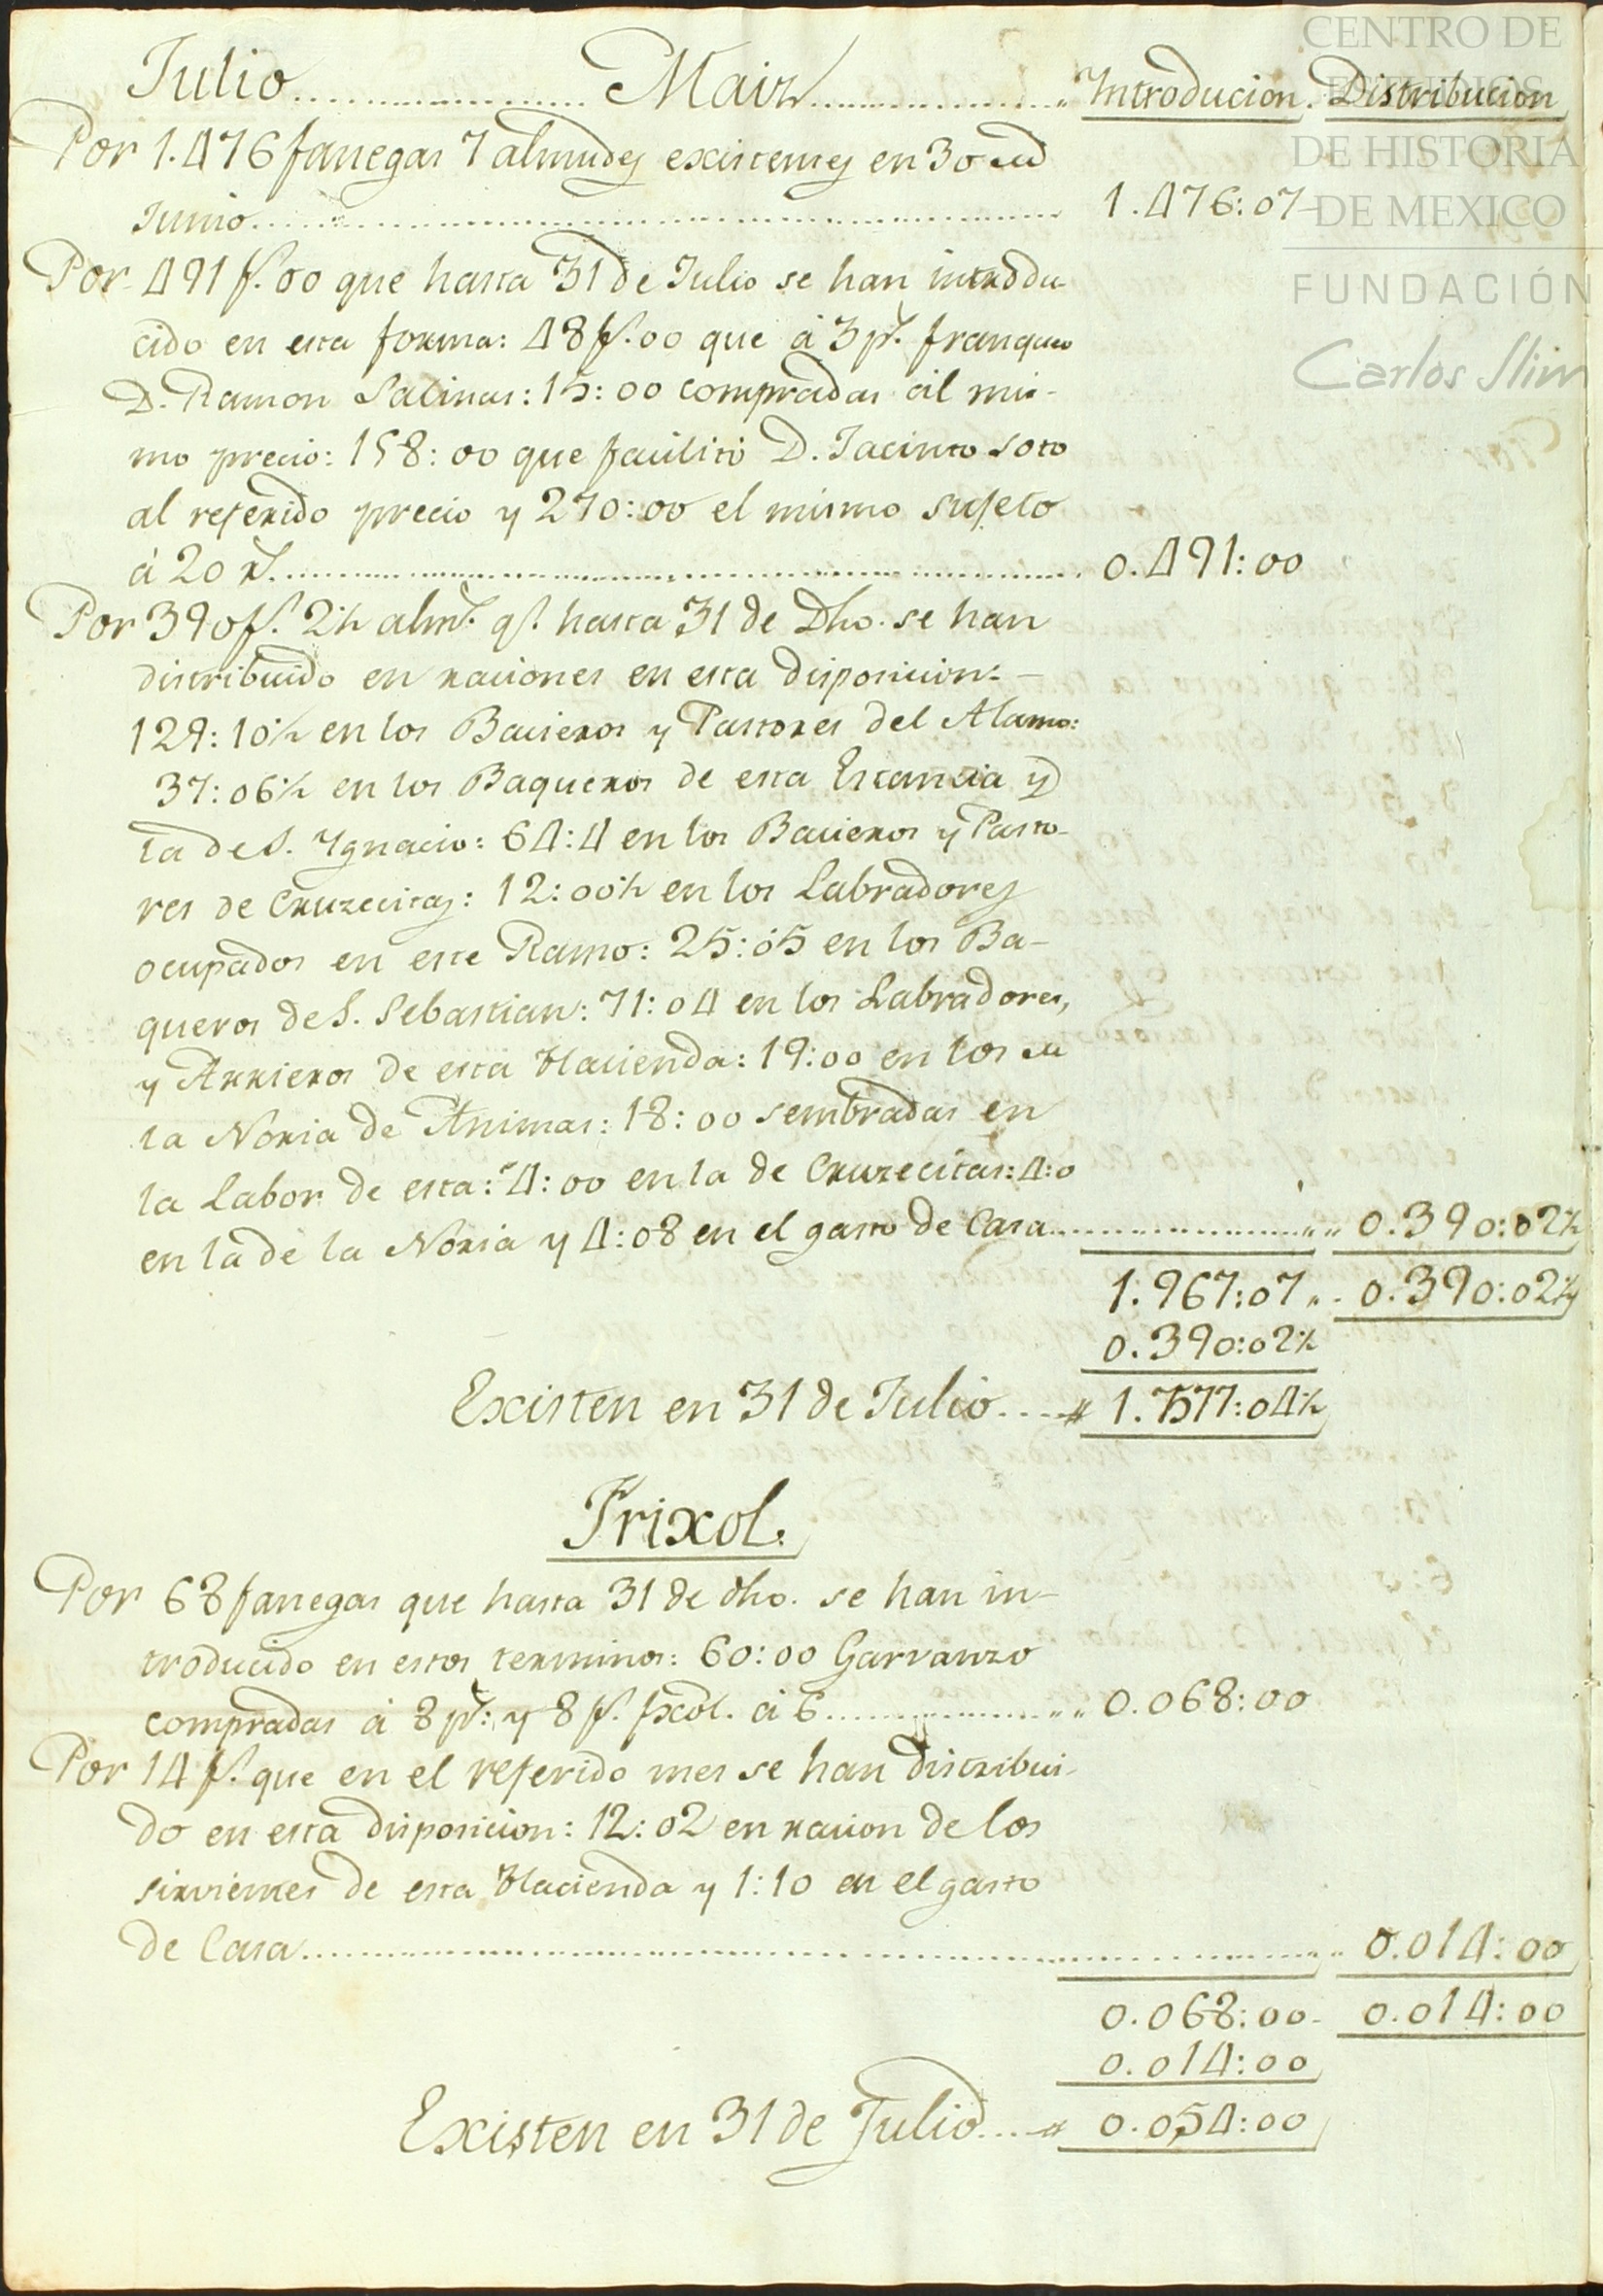 Julio.................... Maiz.................. Introducion. Distribucion
Por 1.476 fanegas 7 almudes existentes en 30 de
Junio........................................ 1.476:07
Por 491 fs. 00 que hasta 31 de Julio se han introdu-
cido en esta forma: 48 fs. 00 que á 3 ps. franqueo
D. Ramon Salinas: 15:00 compradas al mis-
mo precio: 158:00 que facilitó D. Jacinto Soto
al referido precio y 270:00 el mismo sujeto
á 20 rs........................................ 0.491:00
Por 390 fs. 2½ alms. qe. hasta 31 de Dho. se han
distribuido en raciones en esta disposicion: —
129:10½ en los Bacieros y Pastores del Alamo:
37:06½ en los Baqueros de esta Estancia y
la de S. Ygnacio: 64:4 en los Bacieros y Pasto-
res de Cruzecitas: 12:00½ en los Labradores
ocupados en este Ramo: 25:05 en los Ba-
queros de S. Sebastian: 71:04 en los Labradores,
y Arrieros de esta Hacienda: 19:00 en los de
la Noria de Animas: 18:00 sembradas en
la Labor de esta: 4:00 en la de Cruzecitas: 4:0
en la de la Noria y 4:08 en el gasto de Casa.................... 0.390:02½
1.967:07 .. 0.390:02½
0.390:02½
Existen en 31 de Julio.... 1.577:04½
Frixol.
Por 68 fanegas que hasta 31 de dho. se han in-
troducido en estos terminos: 60:00 Garvanzo
compradas á 8 ps: y 8 fs. fxol. á 6................ 0.068:00
Por 14 fs. que en el referido mes se han distribui-
do en esta disposicion: 12:02 en racion de los
sirvientes de esta Hacienda y 1:10 en el gasto
de Casa........................................ 0.014:00
0.068:00 - 0.014:00
0.014:00
Existen en 31 de Julio.... 0.054:00
CENTRO DE
ESTUDIOS
DE HISTORIA
DE MEXICO
FUNDACIÓN
Carlos Slim